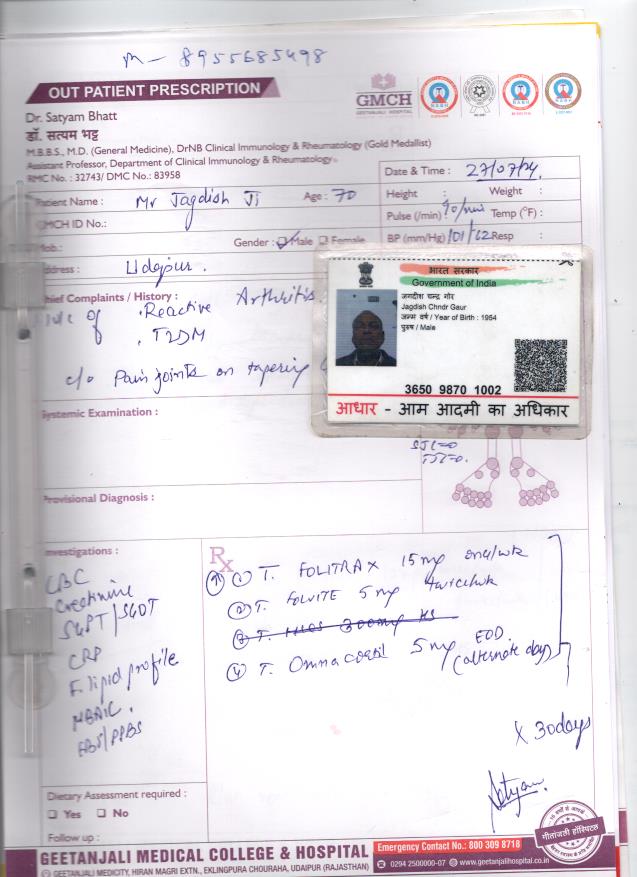 M - 8955685498
OUT PATIENT PRESCRIPTION
GMCH
GEETANJALI HOSPITAL
Dr. Satyam Bhatt
डॉ. सत्यम भट्ट
M.B.B.S., M.D. (General Medicine), DrNB Clinical Immunology & Rheumatology (Gold Medallist)
Assistant Professor, Department of Clinical Immunology & Rheumatology
RMC No. : 32743/ DMC No.: 83958
Date & Time : 27/07/24
Patient Name : Mr Jagdish Ji Age : 70
Height : Weight :
GMCH ID No.:
Pulse (/min) 90/min Temp (°F) :
Mob.: Gender : Male Female
BP (mm/Hg) 101/62 Resp :
Address : Udaipur.
Chief Complaints / History :
of . Reactive Arthritis
. T2DM
c/o Pain joints on tapering
भारत सरकार
Government of India
जगदीश चन्द्र गोर
Jagdish Chndr Gaur
जन्म वर्ष / Year of Birth : 1954
पुरुष / Male
3650 9870 1002
आधार - आम आदमी का अधिकार
Systemic Examination :
SJC=0
TJC=0.
Provisional Diagnosis :
Investigations :
CBC
Creatinine
SGPT/SGOT
CRP
F. lipid profile
HBA1C.
FBS/PPBS
Rx
(1) T. FOLITRAX 15mg once/wk
(2) T. FOLVITE 5 mg twice/wk
(3) T. 300mg HS
(4) T. Omnacortil 5 mg EOD.
(alternate day)
x 30days
Satyam
Dietary Assessment required :
Yes No
Follow up :
गीतांजली हॉस्पिटल
GEETANJALI MEDICAL COLLEGE & HOSPITAL
Emergency Contact No.: 800 309 8718
GEETANJALI MEDICITY, HIRAN MAGRI EXTN., EKLINGPURA CHOURAHA, UDAIPUR (RAJASTHAN)
0294 2500000-07 www.geetanjalihospital.co.in